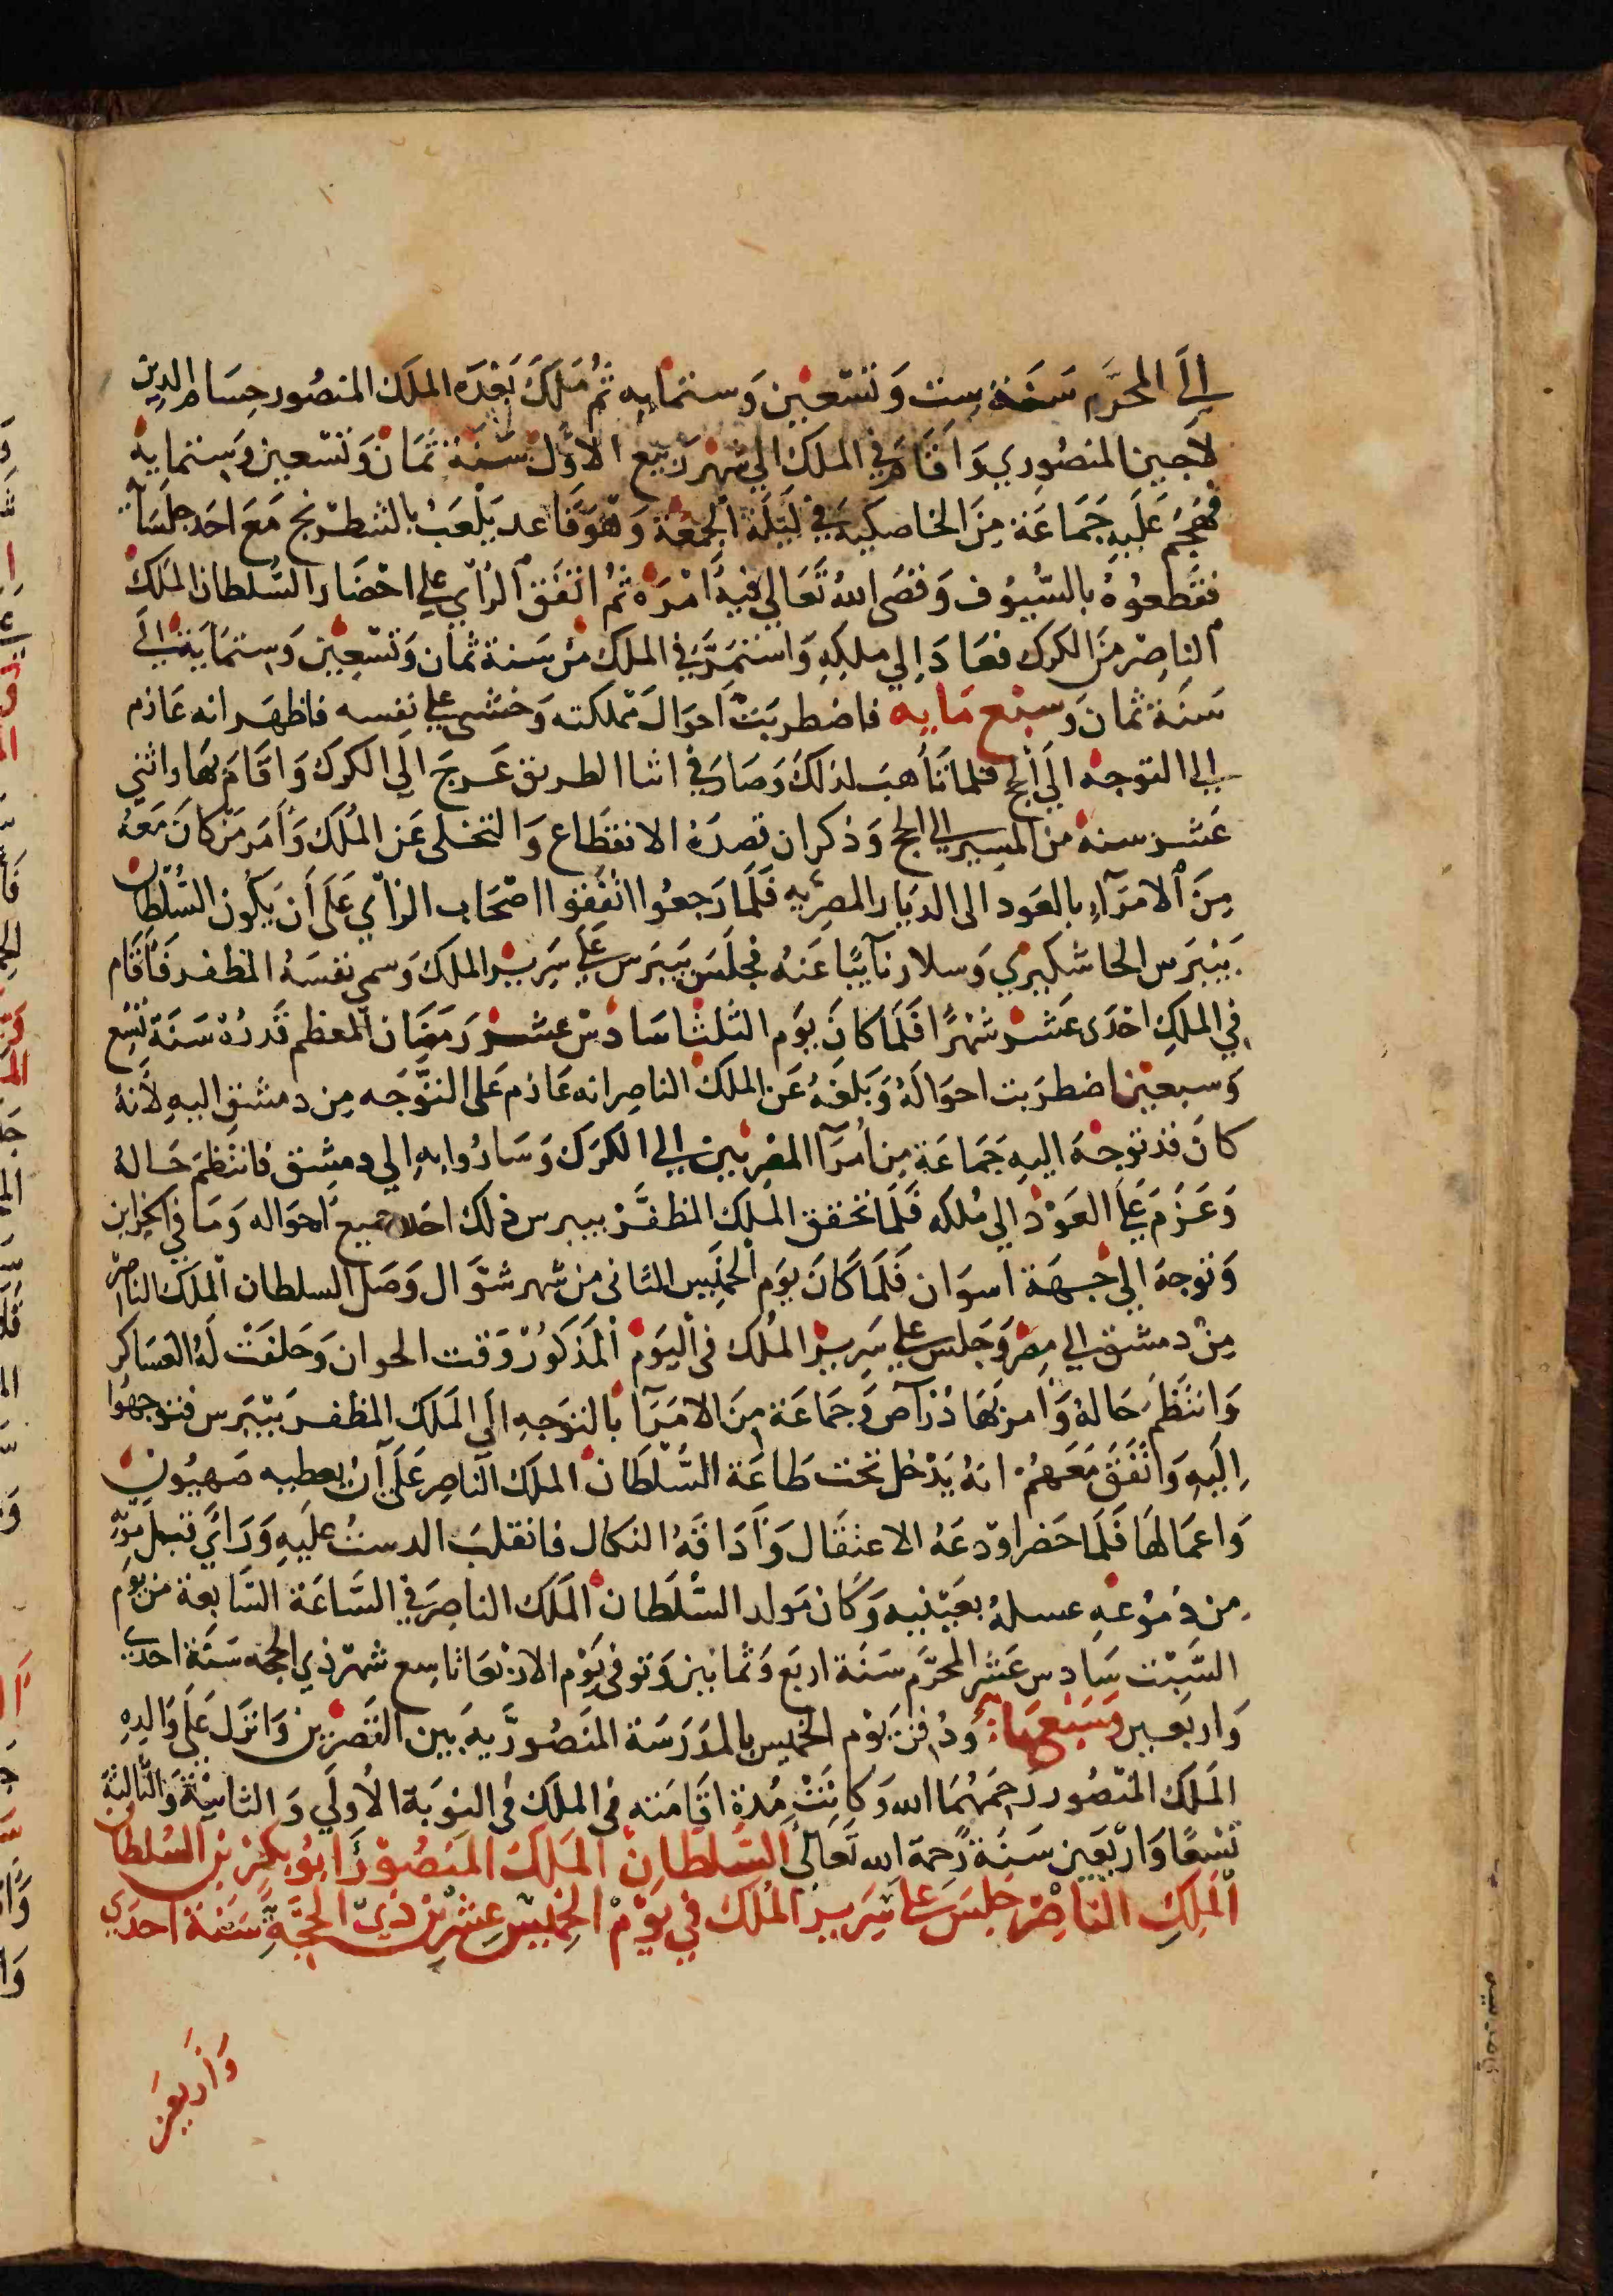 إلى المحرَّم سَنَة ست وَتسْعين وَستمايه ثم مَلكَ بَعْدَه الملَك المنصُور حسَام الدين
لاَجين المنصُوري وَاقَامَ في الملك الي شهر رَبيع الاوَّل سَنَة ثمَانْ وَتسْعين وَستماية
فهَجمَ عَلَيهِ جَمَاعَة مِنَ الخاصكيه في ليَلَة الجمعَة وَهوَ قَاعد يَلْعَبْ بالشطرنج مَعَ احَد جلسَآئه
فقَطعوُهُ بالسُّيوُف وَقضَى اللهُ تَعَالي فيه امْرَهُ ثمُ اتفَقَ الرأي علي احْضَار السُّلطان المَلكْ
الناصِرْ منَ الكرك فعَادَ إلي ملكِهِ وَاستمَرَّ في الملك منْ سَنة ثمان وَتسْعِين وَستمَاية إلَى
سَنَة ثمان وَسبْع مَايه فاضطربَتْ اَحوَالَ مملكته وَخشي علي نفسه فاظهَر انه عَازم
إلى التوجهُ الَي الحج فلما تأهبَ لذلكَ وَصَارَ في اثنا الطريق عَرجَ الَي الكركَ وَاقَامَ بهَا واثني
عَشر سنة من المسِير إلي الحج وَذكر ان قصدَهُ الانقطَاع وَالتخلى عَن المُلَك وَأمَر مَن كانَ مَعَهُ
مِنَ الامَرَآءِ بالعَود الى الديَار المصريه فَلَما رَجعوُا اتفَقوا اصْحَاب الرأي عَلَى أن يَكُون السُّلطَان
بَيْبَرس الجاشنكيري وَسلار نآيبًا عَنه فجلَسَ بيبَرس علي سَرِير الملكَ وَسمي نفسَهُ المظفر فَأقَام
في الملكِ احْدَى عَشرْ شهْرًا فَلَما كانَ يوَم الثلثا سَادسْ عشر رَمضَان المعظم قَدرُهُ سَنَة تسْع
وَسبعين اضطرَبت احوَالَهُ وَبَلغَهُ عَن الملكْ الناصِر انه عَازم عَلى التوَّجه مِن دمشق اليهِ لأنهُ
كانَ قد توجهَ اليهِ جَمَاعَة مِن اُمرَآ المصْريين إلى الكَرَك وَسَارُوا بهِ إلي دمِشق فانتظمَ حَالهُ
وَعَزمَ علَى العَوْدْ الي مُلكه فَلَما تحقق المَلك المظفَّرْ بيبرس ذلك اخَذ جميع اَحوَاله وَمَا في الخزاين
وَتوجهَ إلي جهَة اسوَان فَلَمَا كَانَ يوَم الخَميس الثانى من شهر شوَّال وَصَل السلطان المَلكَ الناصر
مِنْ دمشق الي مِصْر وَجَلسَ علي سَرِيرْ المُلك في اليوَمْ المَذكوُرْ وَقت الحوان وَحَلفَتْ لَهُ العسَاكر
وَانتَظَمَ حَالهُ وَأمرَ بهَادُرْ آص وَجَمَاعَة مِنَ الامَرَآ بالتوَجهِ الَى المَلكَ المظفر بيْبَرس فتوجهَوُا
الَيهِ وَاتفَقَ مَعَهمُ انهُ يَدْخُل تحت طَاعَة السُّلْطَانْ المَلَك الناصِر عَلَى أنْ يعطيه صَهيُون
وَاعمَالهَا فَلَما حَضر اوْدعَهُ الاعتقَال وَأذَاقَهُ النكال فانقلبَ الدستْ علَيهِ وَرَايَ قبل موته
من دمُوُعهِ عسلهُ بعَيْنيه وَكانَ مَولد السُّلَطان المَلَك الناصِرَ في السَّاعَة السَّابعة من يوَم
السَّبْت سَادِس عَشر المحرَّم سَنَة اربَع وَثمانين وَتوفى يَوْم الارْبعَا تاسِع شهرْ ذي الحجه سَنَة احدَي
وَاربعين وَسَبْعمائة وَدُفنَ يَوْم الخميس بالمدرَسَة المنَصُورِّيهَ بَين القَصْرَين وَانزل عَلَى وَالدِهِ
المَلَك المنْصُور رَحمَهُمَا الله وَكانَتْ مُدة اقَامَته في الملكَ في النوَبَة الأُولَي وَالثانيَة وَالثَّالثَة
تسْعًا وَارْبَعَين سَنَة رَّحمَة الله تَعَالَى السُّلطَان المَلكَ المَنصُوْر اَبوُ بَكر بنْ السُلطان
المَلِكِ النَاصِرْ جَلسَ علي سَرِيرِ المُلكَ في يَوْم الخَميسْ عِشرين ذيِ الحجَّةِ سَنَة احدَي
وَاَربعَين